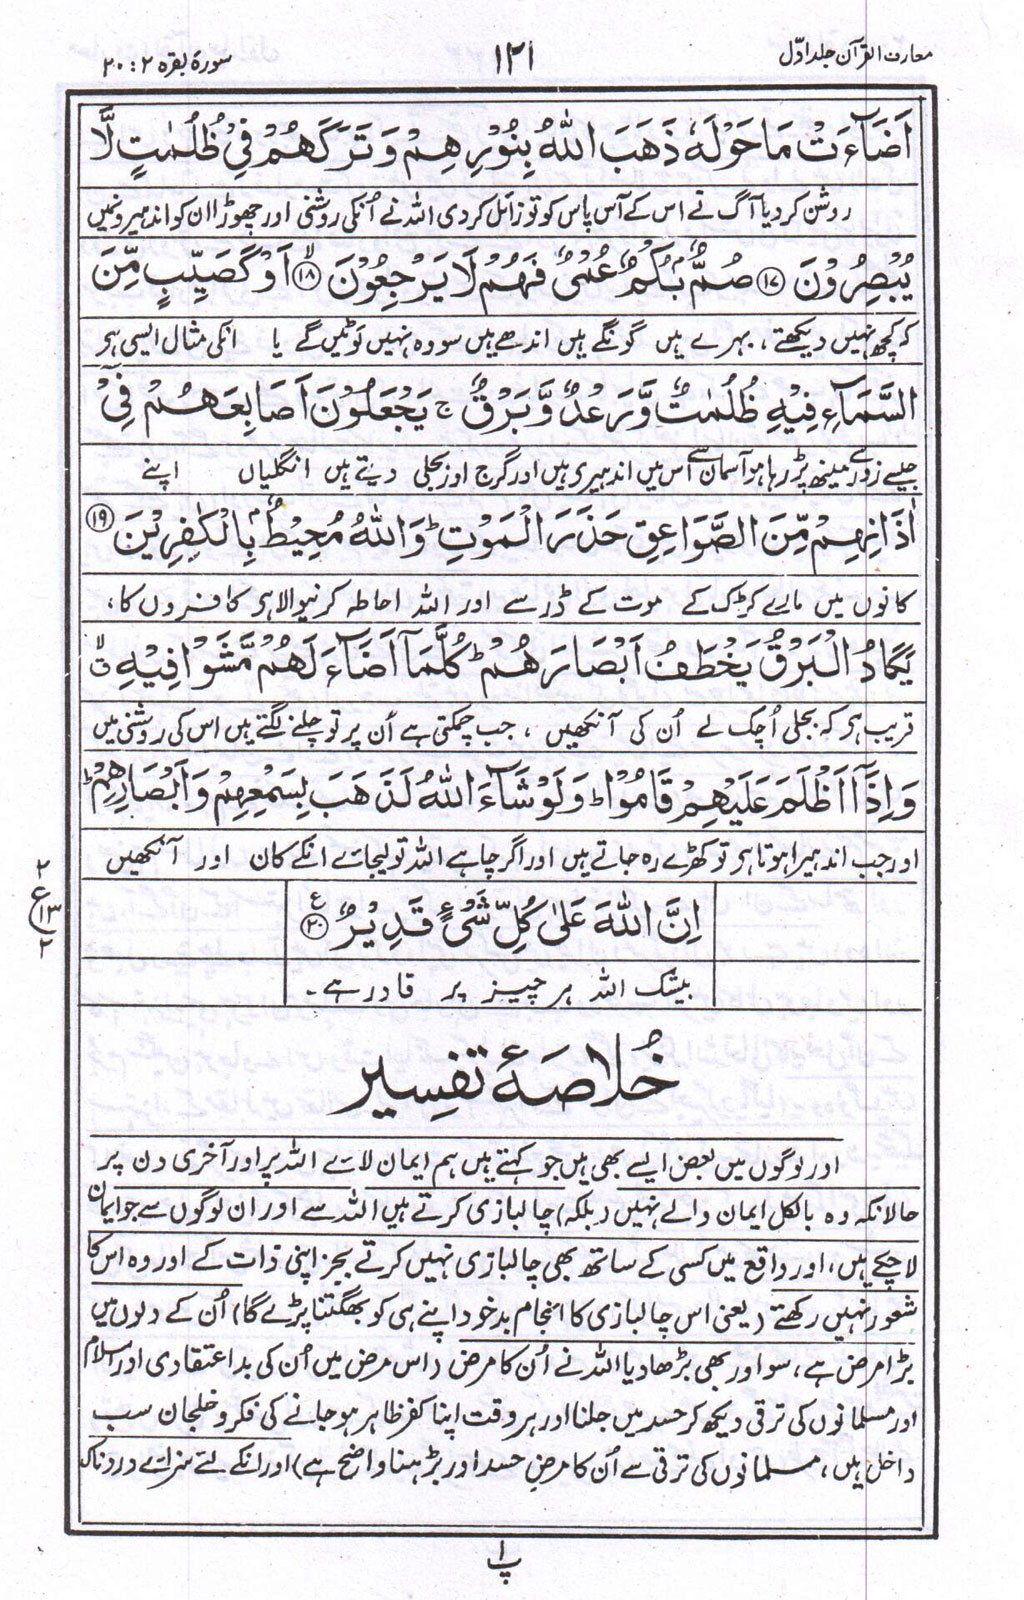 معارف القرآن جلد اوّل
۱۲۱
سورۂ بقرہ ۲ : ۲۰
اَضَآءَتْ مَا حَوْلَهٗ ذَهَبَ اللّٰهُ بِنُوْرِهِمْ وَتَرَكَهُمْ فِيْ ظُلُمٰتٍ لَّا
روشن کردیا آگ نے اس کے آس پاس کو تو زائل کردی اللہ نے اُنکی روشنی اور چھوڑا ان کو اندھیروں میں
يُبْصِرُوْنَ ﴿۱۷﴾ صُمٌّۢ بُكْمٌ عُمْيٌ فَهُمْ لَا يَرْجِعُوْنَ ﴿۱۸﴾ۙ اَوْ كَصَيِّبٍ مِّنَ
کہ کچھ نہیں دیکھتے ، بہرے ہیں گونگے ہیں اندھے ہیں سو وہ نہیں لوٹیں گے یا انکی مثال ایسی ہر
السَّمَآءِ فِيْهِ ظُلُمٰتٌ وَّرَعْدٌ وَّبَرْقٌ ۚ يَجْعَلُوْنَ اَصَابِعَهُمْ فِيْٓ
جیسے زور سے مینھ پڑ رہا ہو آسمان سے اس میں اندھیری ہیں اور گرج اور بجلی دیتے ہیں انگلیاں اپنے
اٰذَانِهِمْ مِّنَ الصَّوَاعِقِ حَذَرَ الْمَوْتِ ؕ وَاللّٰهُ مُحِيْطٌۢ بِالْكٰفِرِيْنَ ﴿۱۹﴾
کانوں میں مارے کڑک کے موت کے ڈر سے اور اللہ احاطہ کرنیوالا ہر کافروں کا ،
يَكَادُ الْبَرْقُ يَخْطَفُ اَبْصَارَهُمْ ؕ كُلَّمَآ اَضَآءَ لَهُمْ مَّشَوْا فِيْهِ ۙ
قریب ہر کہ بجلی اُچک لے اُن کی آنکھیں ، جب چمکتی ہے اُن پر تو چلنے لگتے ہیں اس کی روشنی میں
وَاِذَآ اَظْلَمَ عَلَيْهِمْ قَامُوْا ؕ وَلَوْ شَآءَ اللّٰهُ لَذَهَبَ بِسَمْعِهِمْ وَاَبْصَارِهِمْ ؕ
اور جب اندھیرا ہوتا ہر تو کھڑے رہ جاتے ہیں اور اگر چاہے اللہ تو لیجائے انکے کان اور آنکھیں
اِنَّ اللّٰهَ عَلٰى كُلِّ شَيْءٍ قَدِيْرٌ ﴿۲۰﴾ ع
بیشک اللہ ہر چیز پر قادر ہے ۔
۲
ع
۱۳
۲
خُلاصۂ تفسیر
اور لوگوں میں بعض ایسے بھی ہیں جو کہتے ہیں ہم ایمان لائے اللہ پر اور آخری دن پر
حالانکہ وہ بالکل ایمان والے نہیں (بلکہ) چالبازی کرتے ہیں اللہ سے اور ان لوگوں سے جو ایمان
لاچکے ہیں ، اور واقع میں کسی کے ساتھ بھی چالبازی نہیں کرتے بجز اپنی ذات کے اور وہ اس کا
شعور نہیں رکھتے (یعنی اس چالبازی کا انجام بد خود اپنے ہی کو بھگتنا پڑے گا) اُن کے دلوں میں
بڑا مرض ہے ، سو اور بھی بڑھا دیا اللہ نے اُن کا مرض (اس مرض میں اُن کی بداعتقادی اور اسلام
اور مسلمانوں کی ترقی دیکھ کر حسد میں جلنا اور ہر وقت اپنا کفر ظاہر ہو جانے کی فکر و خلجان سب
داخل ہیں ، مسلمانوں کی ترقی سے اُن کا مرضِ حسد اور بڑھنا واضح ہے) اور انکے لئے سزائے دردناک
پ۱